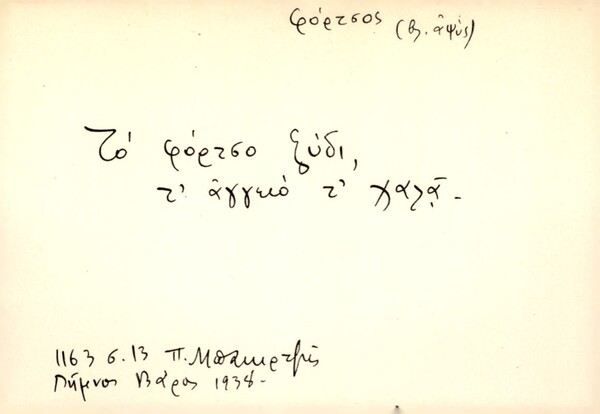 φόρτσος (βλ. ἀψύς)
Τό φόρτσο ξύδι,
τ' ἀγγειό τ' χαλᾷ -
1163 σ. 13 Π. Μπακιρτζῆς
Βάρος 1938-